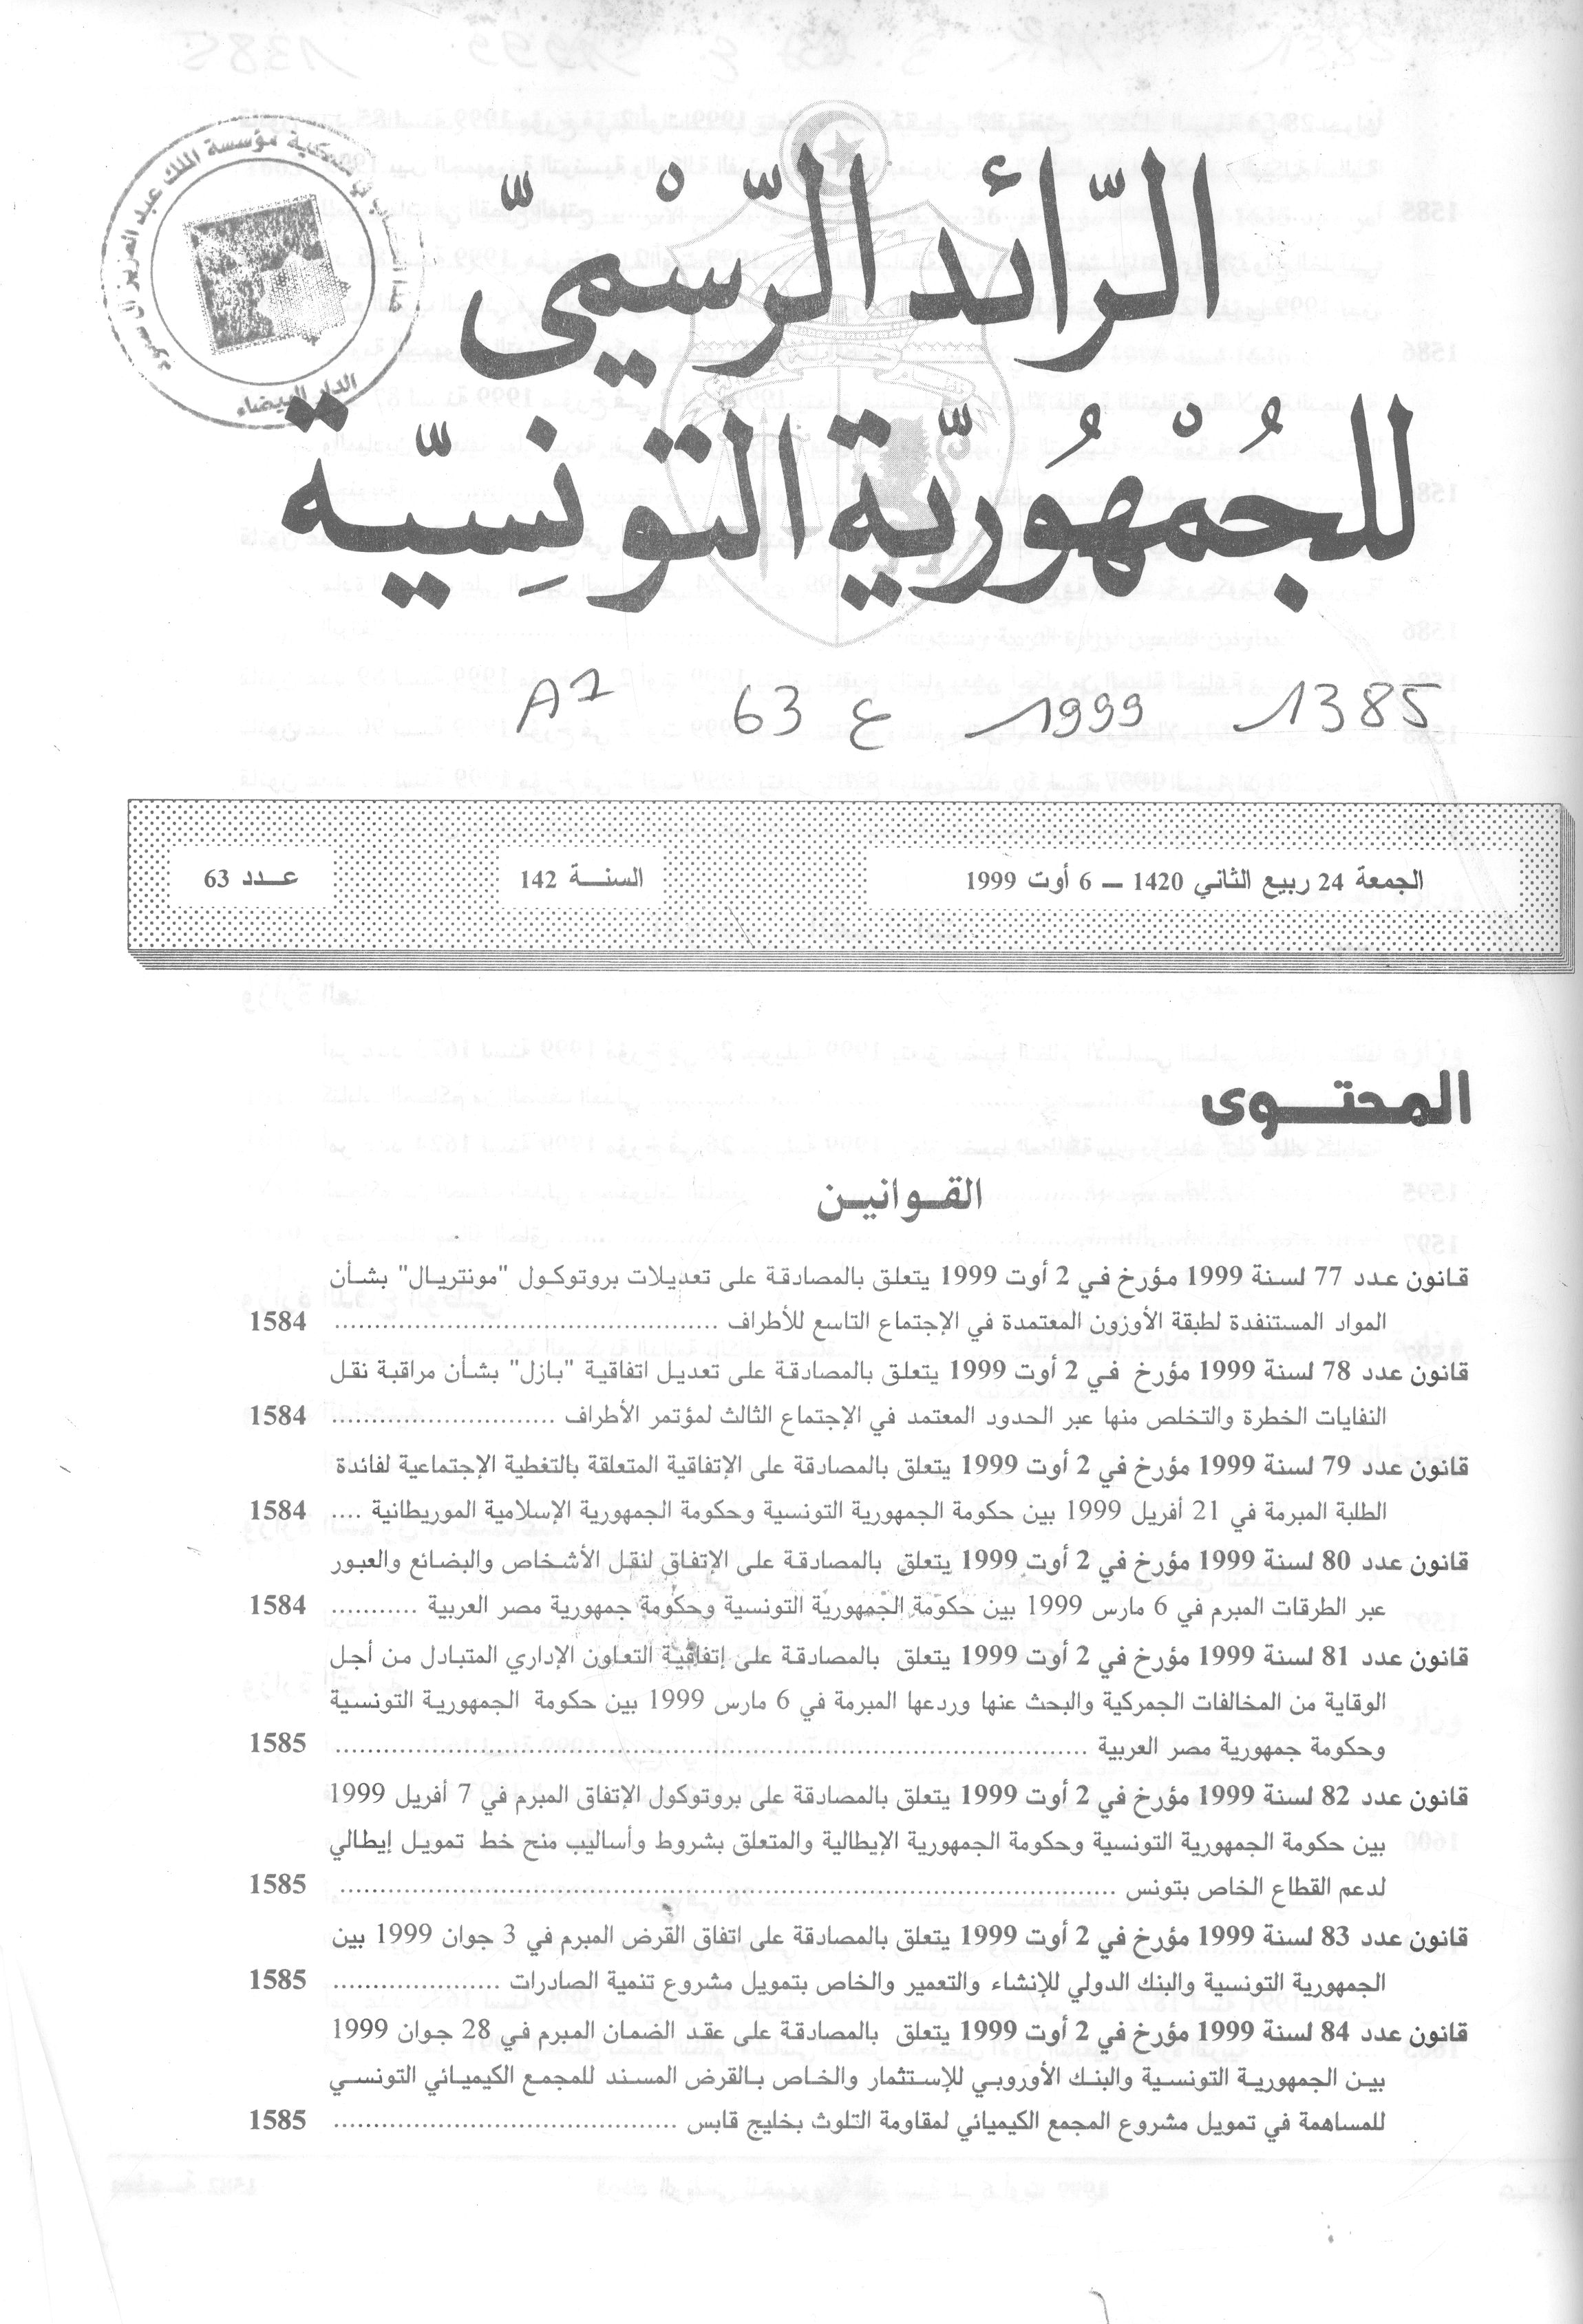 الرّائد الرّسْميّ
للجُمْهُوريّة التونِسيّة
1385 1999 ع 63 A7
الجمعة 24 ربيع الثاني 1420 ــ 6 أوت 1999
السنـــة 142
عــدد 63
المحتــوى
القـوانيـن
قانون عدد 77 لسنة 1999 مؤرخ في 2 أوت 1999 يتعلق بالمصادقة على تعديلات بروتوكول "مونتريال" بشأن
المواد المستنفدة لطبقة الأوزون المعتمدة في الإجتماع التاسع للأطراف ................ 1584
قانون عدد 78 لسنة 1999 مؤرخ في 2 أوت 1999 يتعلق بالمصادقة على تعديل اتفاقية "بازل" بشأن مراقبة نقل
النفايات الخطرة والتخلص منها عبر الحدود المعتمد في الإجتماع الثالث لمؤتمر الأطراف ................ 1584
قانون عدد 79 لسنة 1999 مؤرخ في 2 أوت 1999 يتعلق بالمصادقة على الإتفاقية المتعلقة بالتغطية الإجتماعية لفائدة
الطلبة المبرمة في 21 أفريل 1999 بين حكومة الجمهورية التونسية وحكومة الجمهورية الإسلامية الموريطانية .... 1584
قانون عدد 80 لسنة 1999 مؤرخ في 2 أوت 1999 يتعلق بالمصادقة على الإتفاق لنقل الأشخاص والبضائع والعبور
عبر الطرقات المبرم في 6 مارس 1999 بين حكومة الجمهورية التونسية وحكومة جمهورية مصر العربية ........... 1584
قانون عدد 81 لسنة 1999 مؤرخ في 2 أوت 1999 يتعلق بالمصادقة على إتفاقية التعاون الإداري المتبادل من أجل
الوقاية من المخالفات الجمركية والبحث عنها وردعها المبرمة في 6 مارس 1999 بين حكومة الجمهورية التونسية
وحكومة جمهورية مصر العربية ................ 1585
قانون عدد 82 لسنة 1999 مؤرخ في 2 أوت 1999 يتعلق بالمصادقة على بروتوكول الإتفاق المبرم في 7 أفريل 1999
بين حكومة الجمهورية التونسية وحكومة الجمهورية الإيطالية والمتعلق بشروط وأساليب منح خط تمويل إيطالي
لدعم القطاع الخاص بتونس ................ 1585
قانون عدد 83 لسنة 1999 مؤرخ في 2 أوت 1999 يتعلق بالمصادقة على اتفاق القرض المبرم في 3 جوان 1999 بين
الجمهورية التونسية والبنك الدولي للإنشاء والتعمير والخاص بتمويل مشروع تنمية الصادرات ................ 1585
قانون عدد 84 لسنة 1999 مؤرخ في 2 أوت 1999 يتعلق بالمصادقة على عقد الضمان المبرم في 28 جوان 1999
بين الجمهورية التونسية والبنك الأوروبي للإستثمار والخاص بالقرض المسند للمجمع الكيميائي التونسي
للمساهمة في تمويل مشروع المجمع الكيميائي لمقاومة التلوث بخليج قابس ................ 1585
مؤسسة الملك عبد العزيز آل سعود
الدار البيضاء